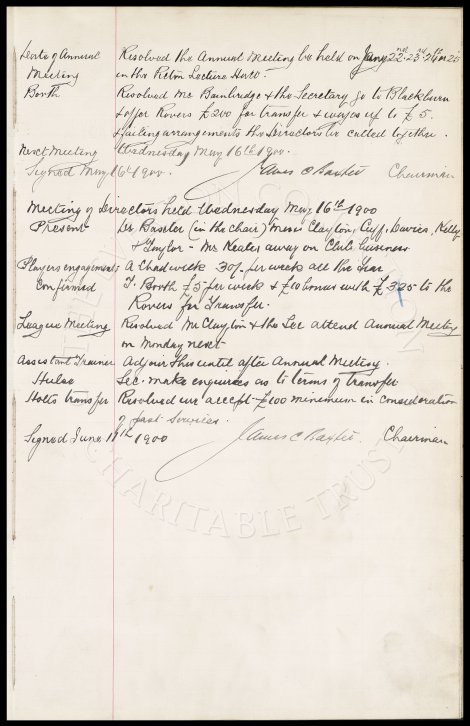 Date of Annual Resolved the Annual Meeting be held on Jany 22nd 23rd 24th or 25
Meeting in the Picton Lecture Hall.
Booth Resolved Mr Bainbridge & the Secretary go to Blackburn
& offer Rovers £200 for transfer & wages up to £5.
failing arrangements the Directors be called together.
Next Meeting Wednesday May 16th 1900.
Signed May 16th 1900. James C Baxter Chairman
Meeting of Directors held Wednesday May 16th 1900
Present Dr Baxter (in the chair) Messrs Clayton, Cuff, Davies, Kelly
& Taylor - Mr Keates away on Club business
Players engagements A Chadwick 30/- per week all the Year
Confirmed T. Booth £5 per week & £10 bonus with £325 to the
Rovers for Transfer.
League Meeting Resolved Mr Clayton & the Sec attend Annual Meeting
on Monday next
Assistant Trainer Adjourn this until after Annual Meeting.
Hulse Sec. make enquiries as to terms of transfer
Holts transfer Resolved we accept £100 minimum in consideration
of past services.
Signed June 11th 1900 James C Baxter Chairman
CHARITABLE TRUST